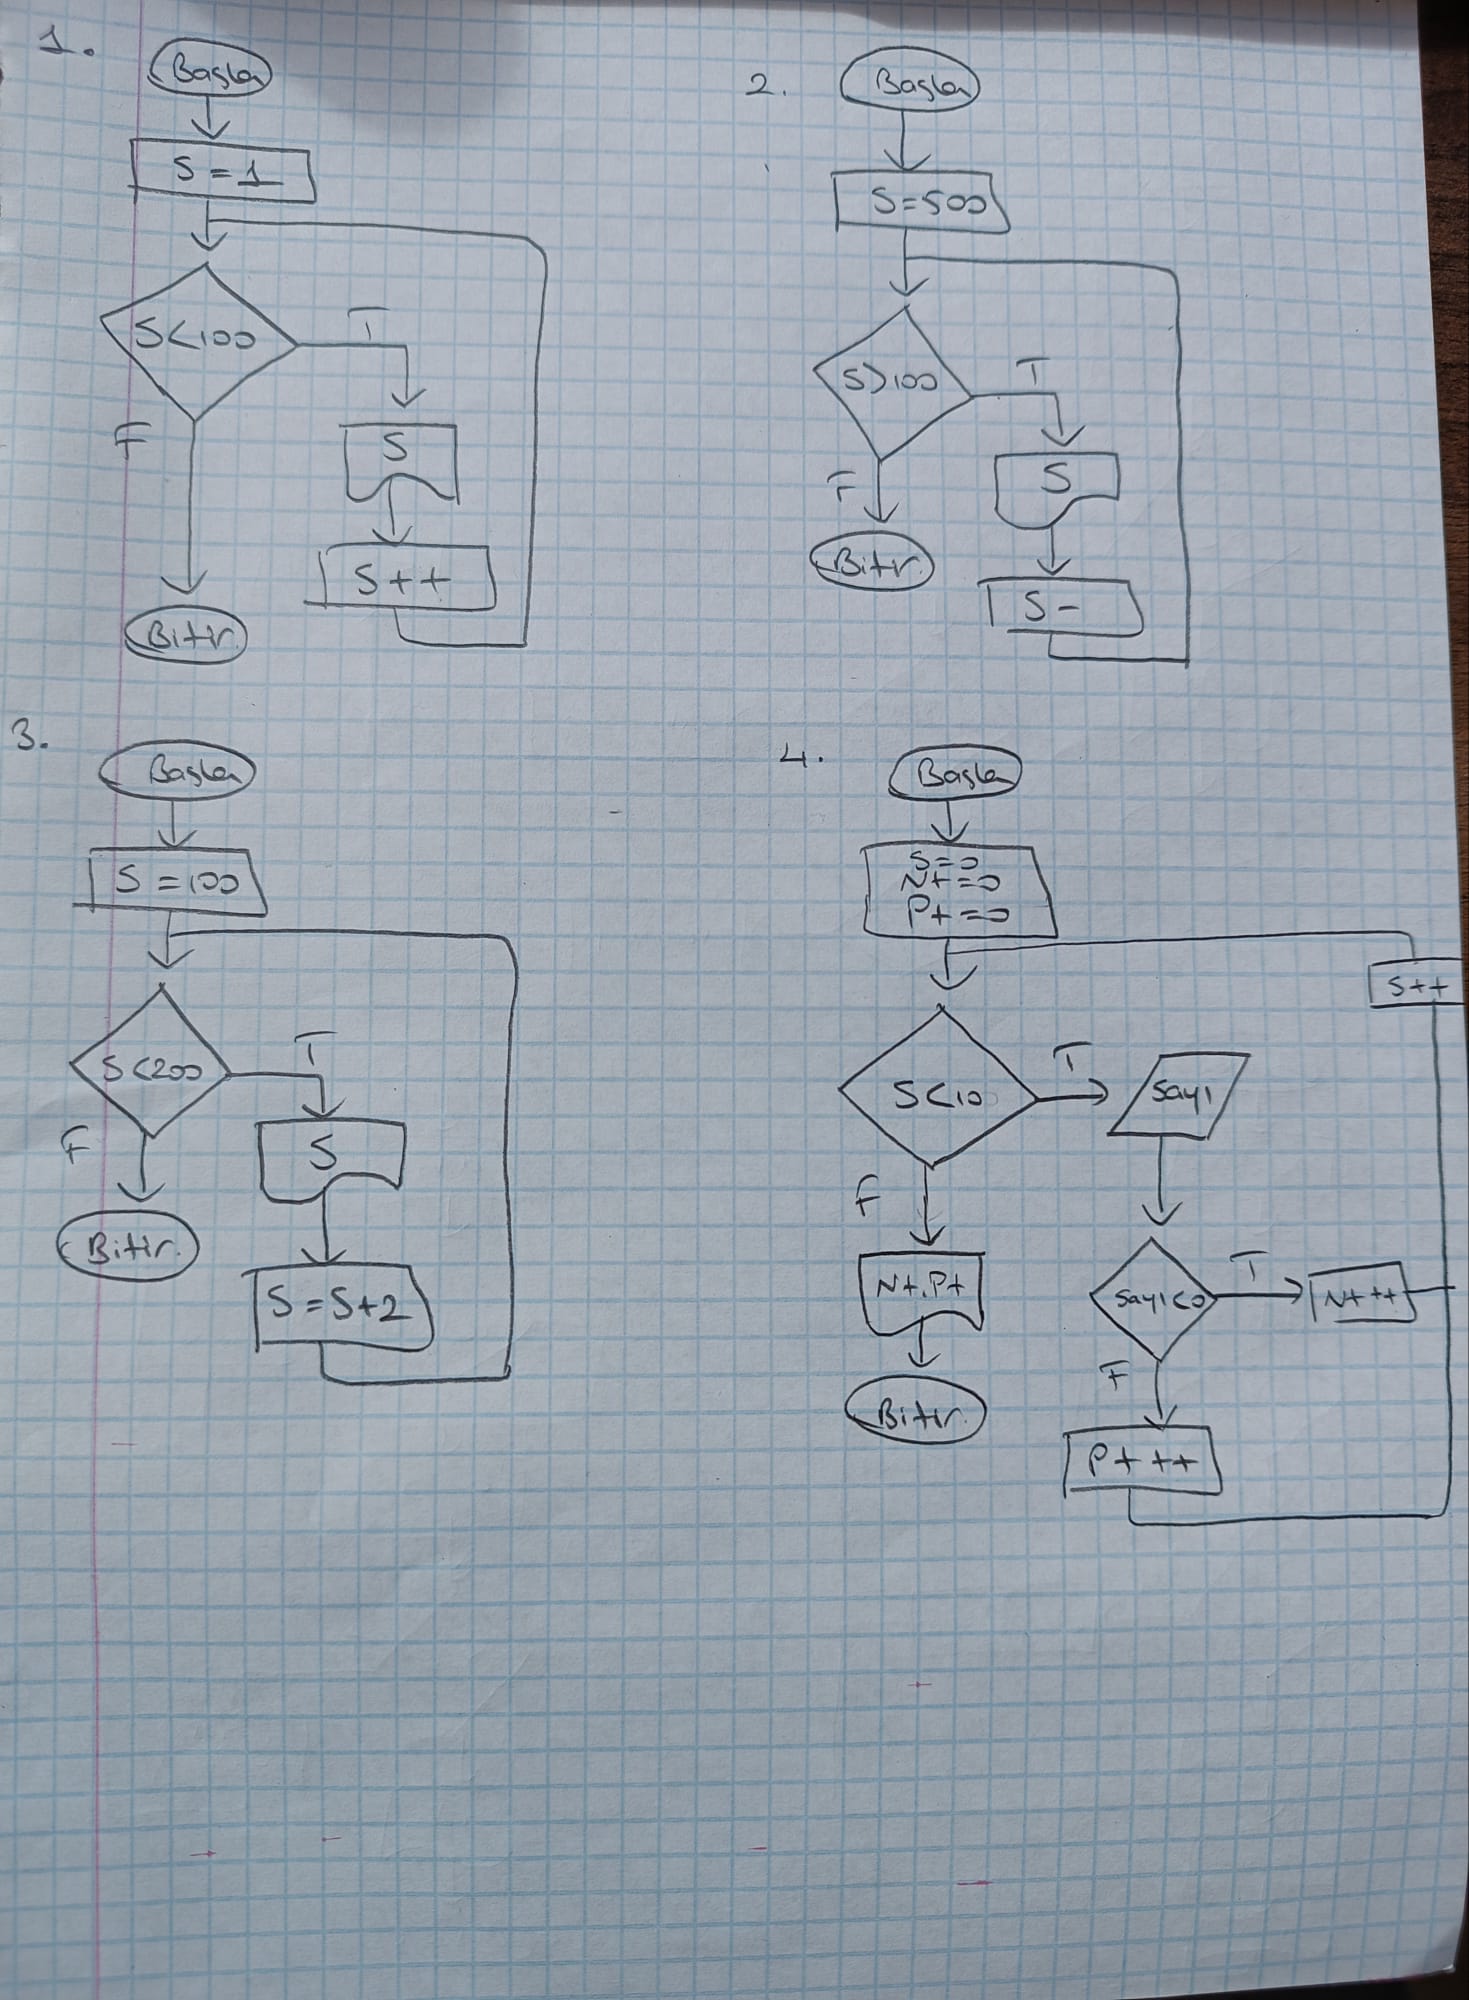 1.
Başla
S = 1
S<100
T
F
S
S++
Bitir.
2.
Başla
S=500
S>100
T
F
S
S-
Bitir.
3.
Başla
S = 100
S<200
T
F
S
S = S+2
Bitir.
4.
Başla
S=0
N+=0
P+=0
S++
S<10
T
Sayı
F
N+.P+
Sayı<0
T
N+ ++
F
P+ ++
Bitir.